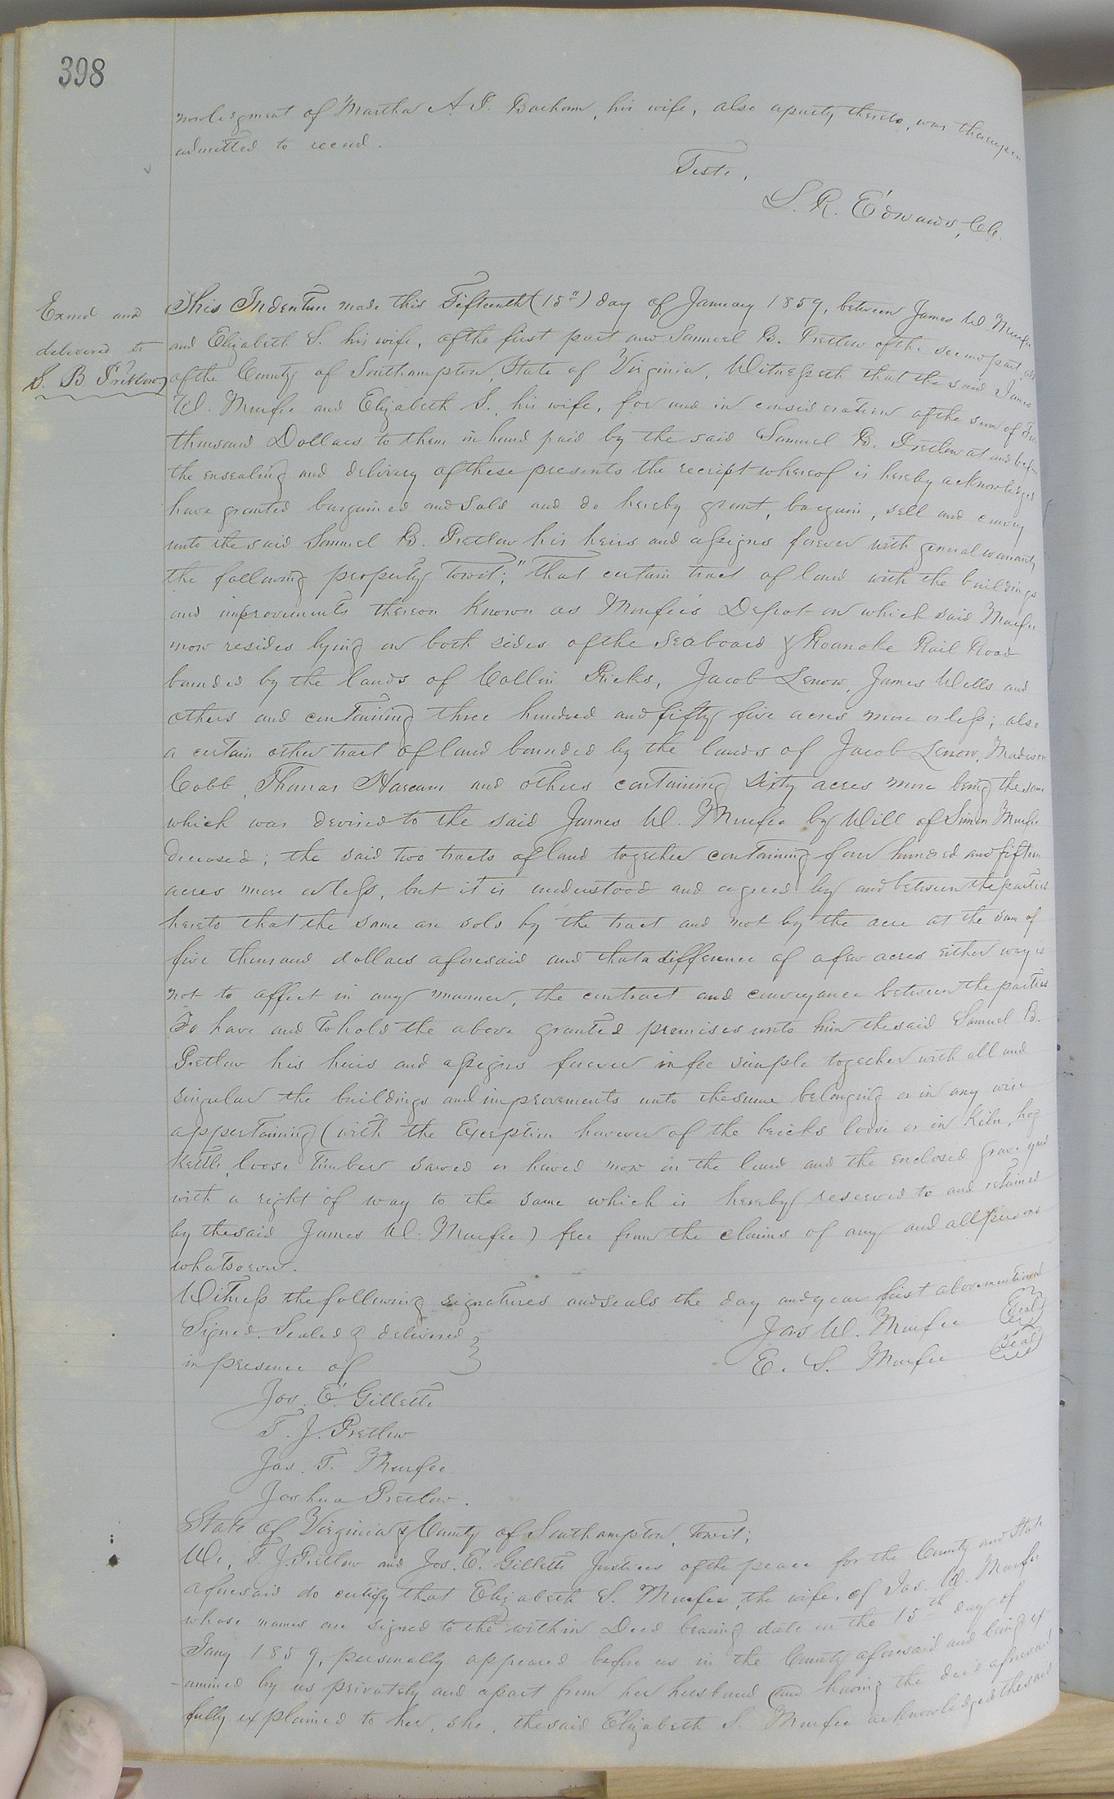 398
nowledgment of Martha A. P. Barham, his wife, also a party thereto, was thereupon
admitted to record.
Teste,
L. R. Edwards, Clk.
Exmd and
delivered to
S. B. Pretlow
This Indenture made this Fifteenth (15th) day of January 1859, between James W. Murfee
and Elizabeth S. his wife, of the first part and Samuel B. Pretlow of the second part, all
of the County of Southampton, State of Virginia, Witnesseth that the said James
W. Murfee and Elizabeth S. his wife, for and in consideration of the sum of Five
thousand Dollars to them in hand paid by the said Samuel B. Pretlow at and before
the ensealing and delivery of these presents the receipt whereof is hereby acknowledged
have granted bargained and sold and do hereby grant, bargain, sell and convey
unto the said Samuel B. Pretlow his heirs and assigns forever with general warranty
the following property Towit; "That certain tract of land with the buildings
and improvements thereon known as Murfee's Depot on which said Murfee
now resides lying on both sides of the Seaboard & Roanoke Rail Road
bounded by the lands of Collin Pricks, Jacob Lenow, James Wells and
others and containing three hundred and fifty five acres more or less; also
a certain other tract of land bounded by the lands of Jacob Lenow, Madison
Cobb, Thomas Harcum and others containing Sixty acres more being the same
which was devised to the said James W. Murfee by Will of Simon Murfee
deceased; the said two tracts of land together containing four hundred and fifteen
acres more or less, but it is understood and agreed by and between the parties
hereto that the same are sold by the tract and not by the acre at the sum of
five thousand dollars aforesaid and that a difference of a few acres either way is
not to affect in any manner, the contract and conveyance between the parties
To have and to hold the above granted premises unto him the said Samuel B.
Pretlow his heirs and assigns forever in fee simple together with all and
singular the buildings and improvements unto the same belonging or in any wise
appertaining (with the Exception however of the bricks loose or in Kiln, hog
Kettle, loose timber sawed or hewed now on the land and the enclosed grave yard
with a right of way to the same which is hereby reserved to and retained
by the said James W. Murfee) free from the claims of any and all persons
whatsoever.
Witness the following signatures and seals the day and year first above mentioned
Signed Sealed & delivered
in presence of
Jas W. Murfee (Seal)
E. S. Murfee (Seal)
Jos. E. Gillette
T. J. Pretlow
Jas. T. Murfee
Joshua Pretlow.
State of Virginia & County of Southampton, Towit;
We, T. J. Pretlow and Jos. E. Gillette Justices of the peace for the County and State
aforesaid do certify that Elizabeth S. Murfee, the wife, of Jas. W. Murfee
whose names are signed to the within Deed bearing date on the 15th day of
Jany 1859, personally appeared before us in the County aforesaid and being ex
-amined by us privately and apart from her husband and having the deed aforesaid
fully explained to her, she, the said Elizabeth S. Murfee acknowledged the said